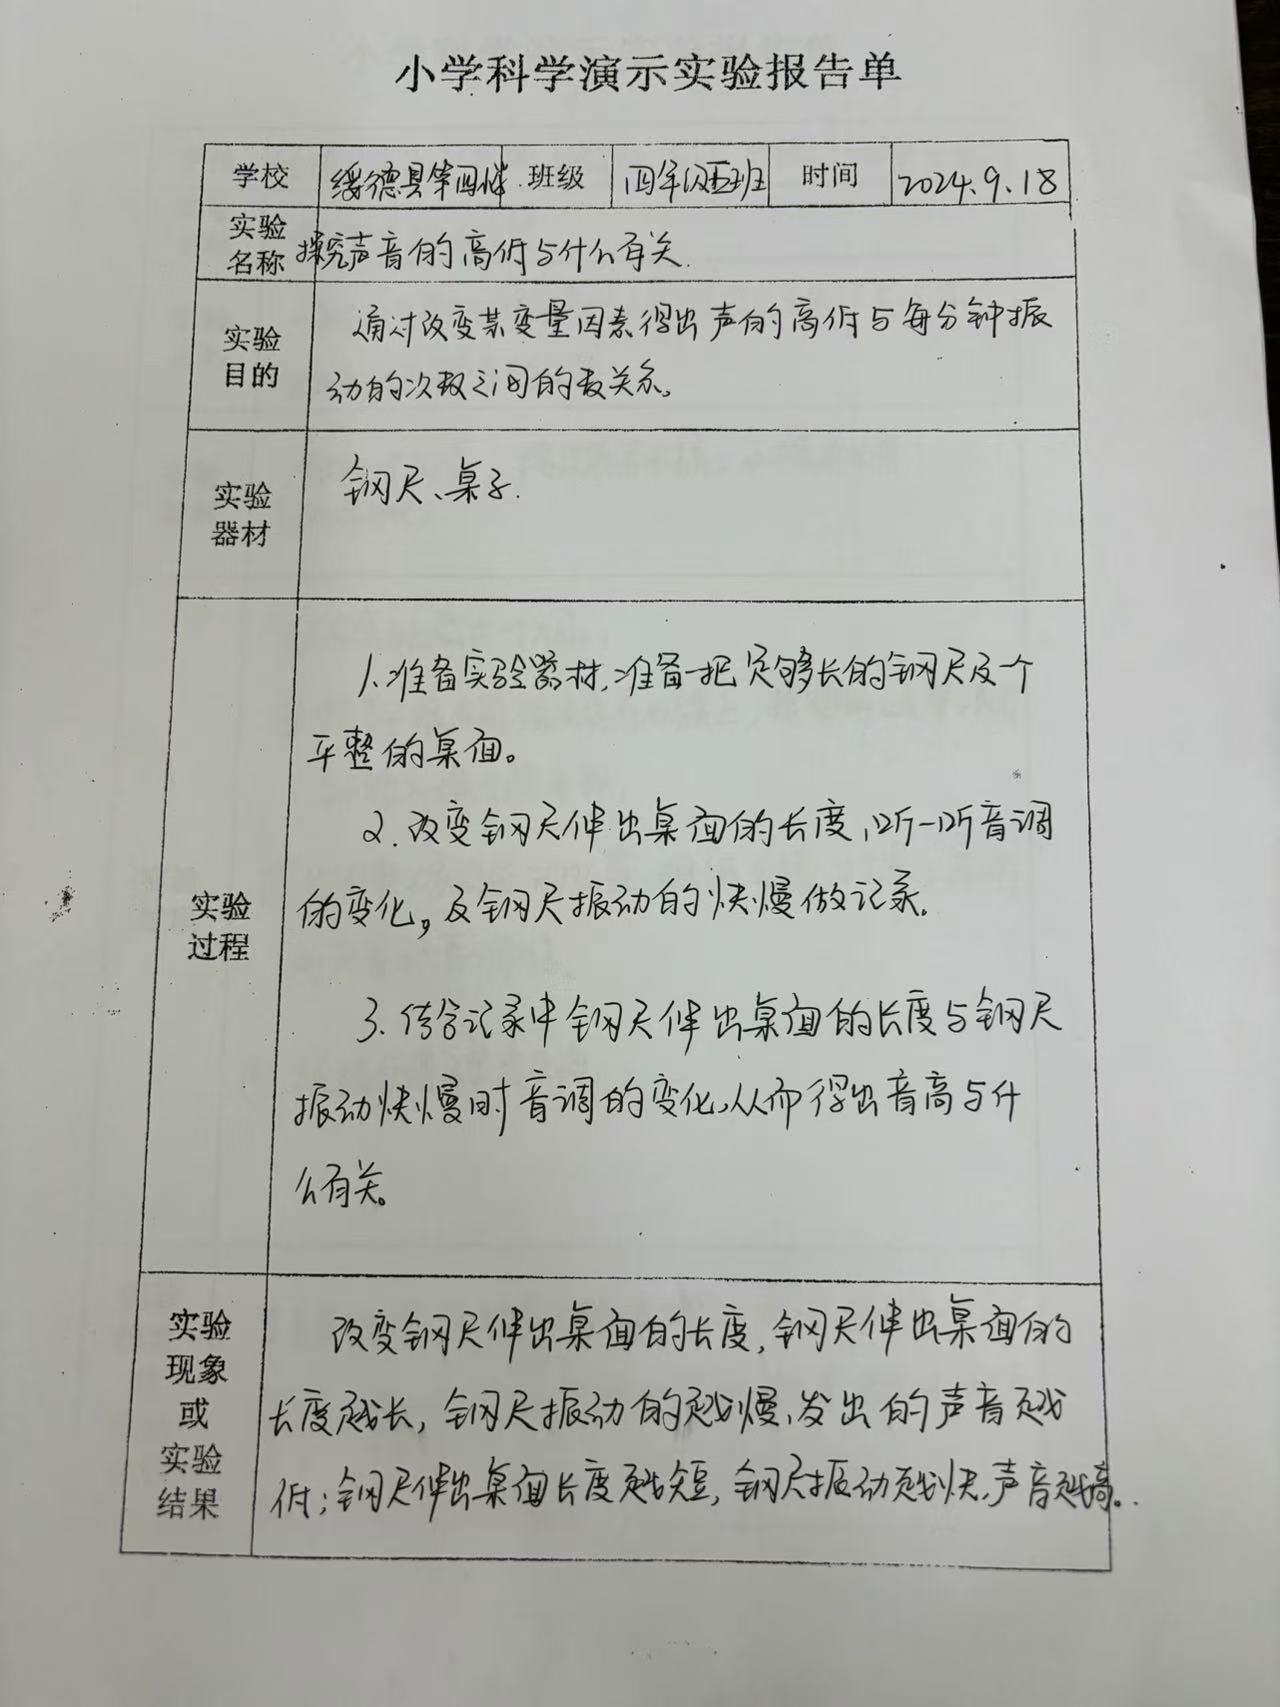 小学科学演示实验报告单
学校 绥德县第四小 班级 四年级五班 时间 2024.9.18
实验名称 探究声音的高低与什么有关.
实验目的 通过改变某变量因素得出声的高低与每分钟振
动的次数之间的关系。
实验器材 钢尺、桌子.
1.准备实验器材,准备一把足够长的钢尺及一个
平整的桌面。
2.改变钢尺伸出桌面的长度,听一听音调
实验过程 的变化,及钢尺振动的快慢做记录.
3.结合记录中钢尺伸出桌面的长度与钢尺
振动快慢时音调的变化,从而得出音高与什
么有关。
实验现象或实验结果 改变钢尺伸出桌面的长度,钢尺伸出桌面的
长度越长,钢尺振动的越慢,发出的声音越
低;钢尺伸出桌面长度越短,钢尺振动越快,声音越高。